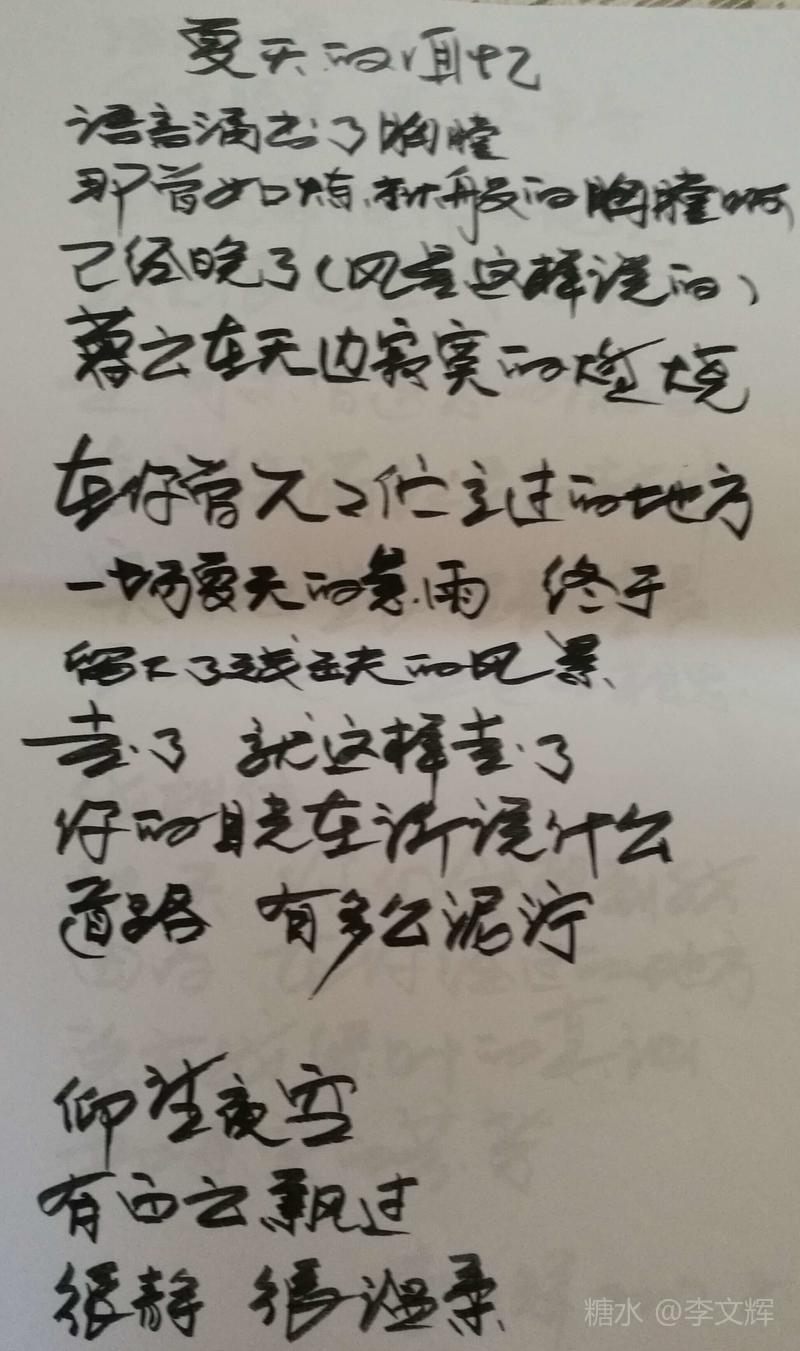 夏天的回忆
语言涌出了胸膛
那曾如烤般的胸膛啊
已经晚了(风是这样说的)
暮云在天边寂寞的燃烧
在你曾人伫立过的地方
一场夏天的急雨 终于
留下了残缺的风景
走了 就这样走了
你的目光在诉说什么
道路 有多么泥泞
仰望夜空
有白云飘过
很静 很温柔
糖水 @李文辉